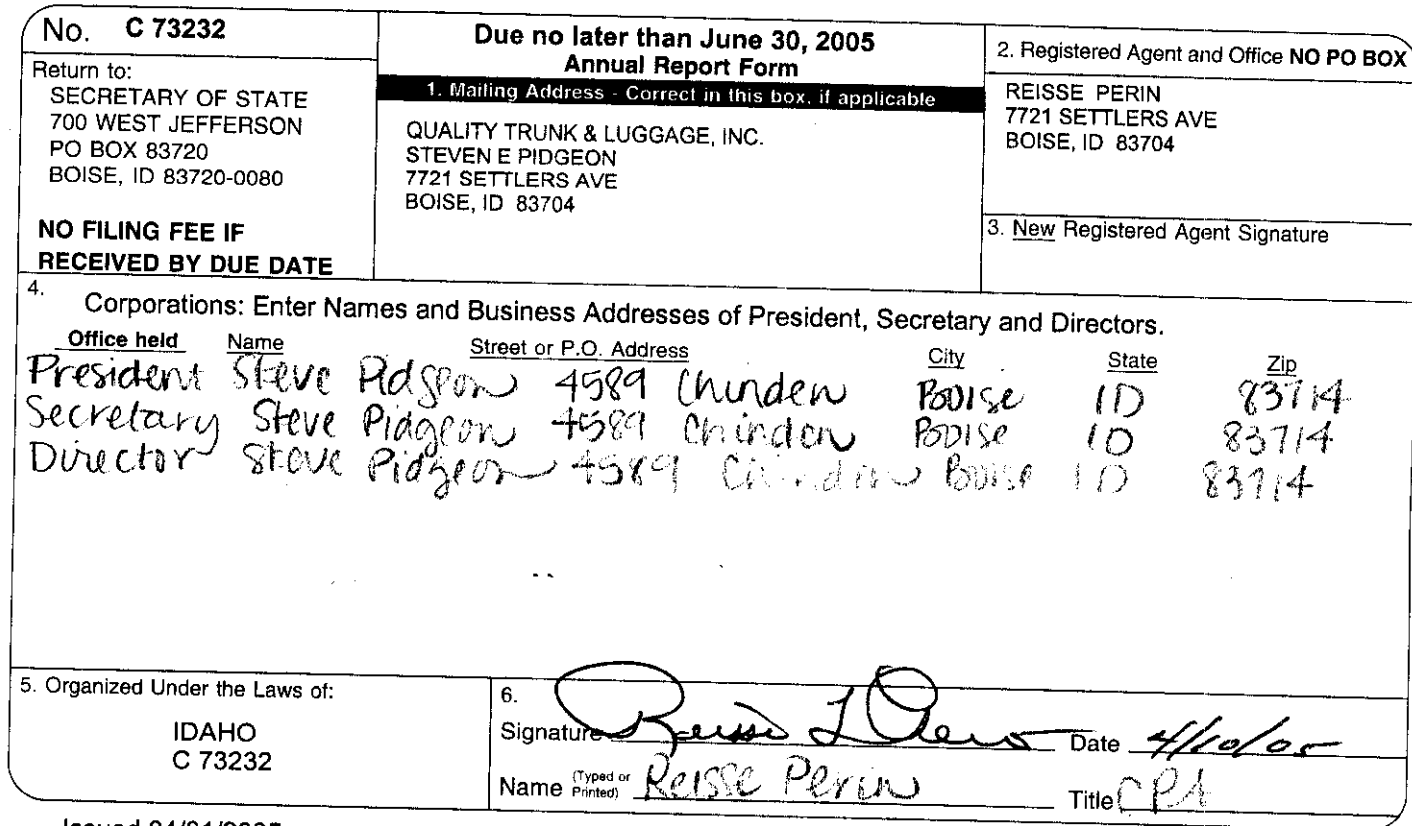 No. C 73232
Return to:
SECRETARY OF STATE
700 WEST JEFFERSON
PO BOX 83720
BOISE, ID 83720-0080
NO FILING FEE IF
RECEIVED BY DUE DATE
Due no later than June 30, 2005
Annual Report Form
1. Mailing Address - Correct in this box, if applicable
QUALITY TRUNK & LUGGAGE, INC.
STEVEN E PIDGEON
7721 SETTLERS AVE
BOISE, ID 83704
2. Registered Agent and Office NO PO BOX
REISSE PERIN
7721 SETTLERS AVE
BOISE, ID 83704
3. New Registered Agent Signature
4. Corporations: Enter Names and Business Addresses of President, Secretary and Directors.
Office held Name Street or P.O. Address City State Zip
President Steve Pidgeon 4589 Chinden Boise ID 83714
Secretary Steve Pidgeon 4589 Chinden Boise ID 83714
Director Steve Pidgeon 4589 Chinden Boise ID 83714
5. Organized Under the Laws of:
IDAHO
C 73232
6.
Signature Reisse L Perin Date 4/10/05
Name (Typed or Printed) Reisse Perin Title CPA